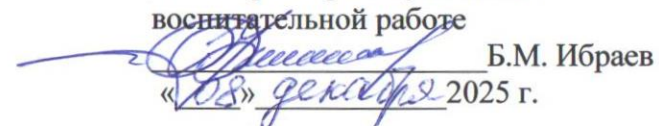 воспитательной работе
Б.М. Ибраев
«08» декабря 2025 г.